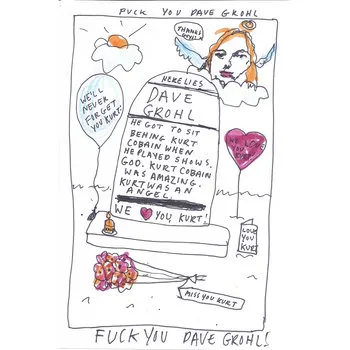 FUCK YOU DAVE GROHL
THANKS
GUYS!
HERE LIES
DAVE
GROHL
HE GOT TO SIT
BEHING KURT
COBAIN WHEN
HE PLAYED SHOWS.
GOD. KURT COBAIN
WAS AMAZING.
KURT WAS AN
ANGEL.
WE YOU, KURT!
WE'LL
NEVER
FORGET
YOU KURT.
WE LOVE
YOU
LOVE
YOU
KURT
MISS YOU KURT
FUCK YOU DAVE GROHL!